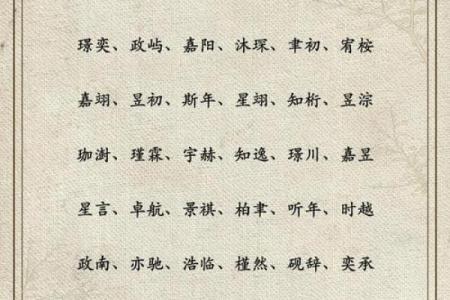 璟奕、政屿、嘉阳、沐琛、聿初、宥桉
嘉翊、昱初、斯年、星翊、知桁、昱淙
珈澍、瑾霖、宇赫、知逸、璟川、嘉昱
星言、卓航、景祺、柏聿、听年、时越
政南、亦驰、浩临、槿然、砚辞、奕承